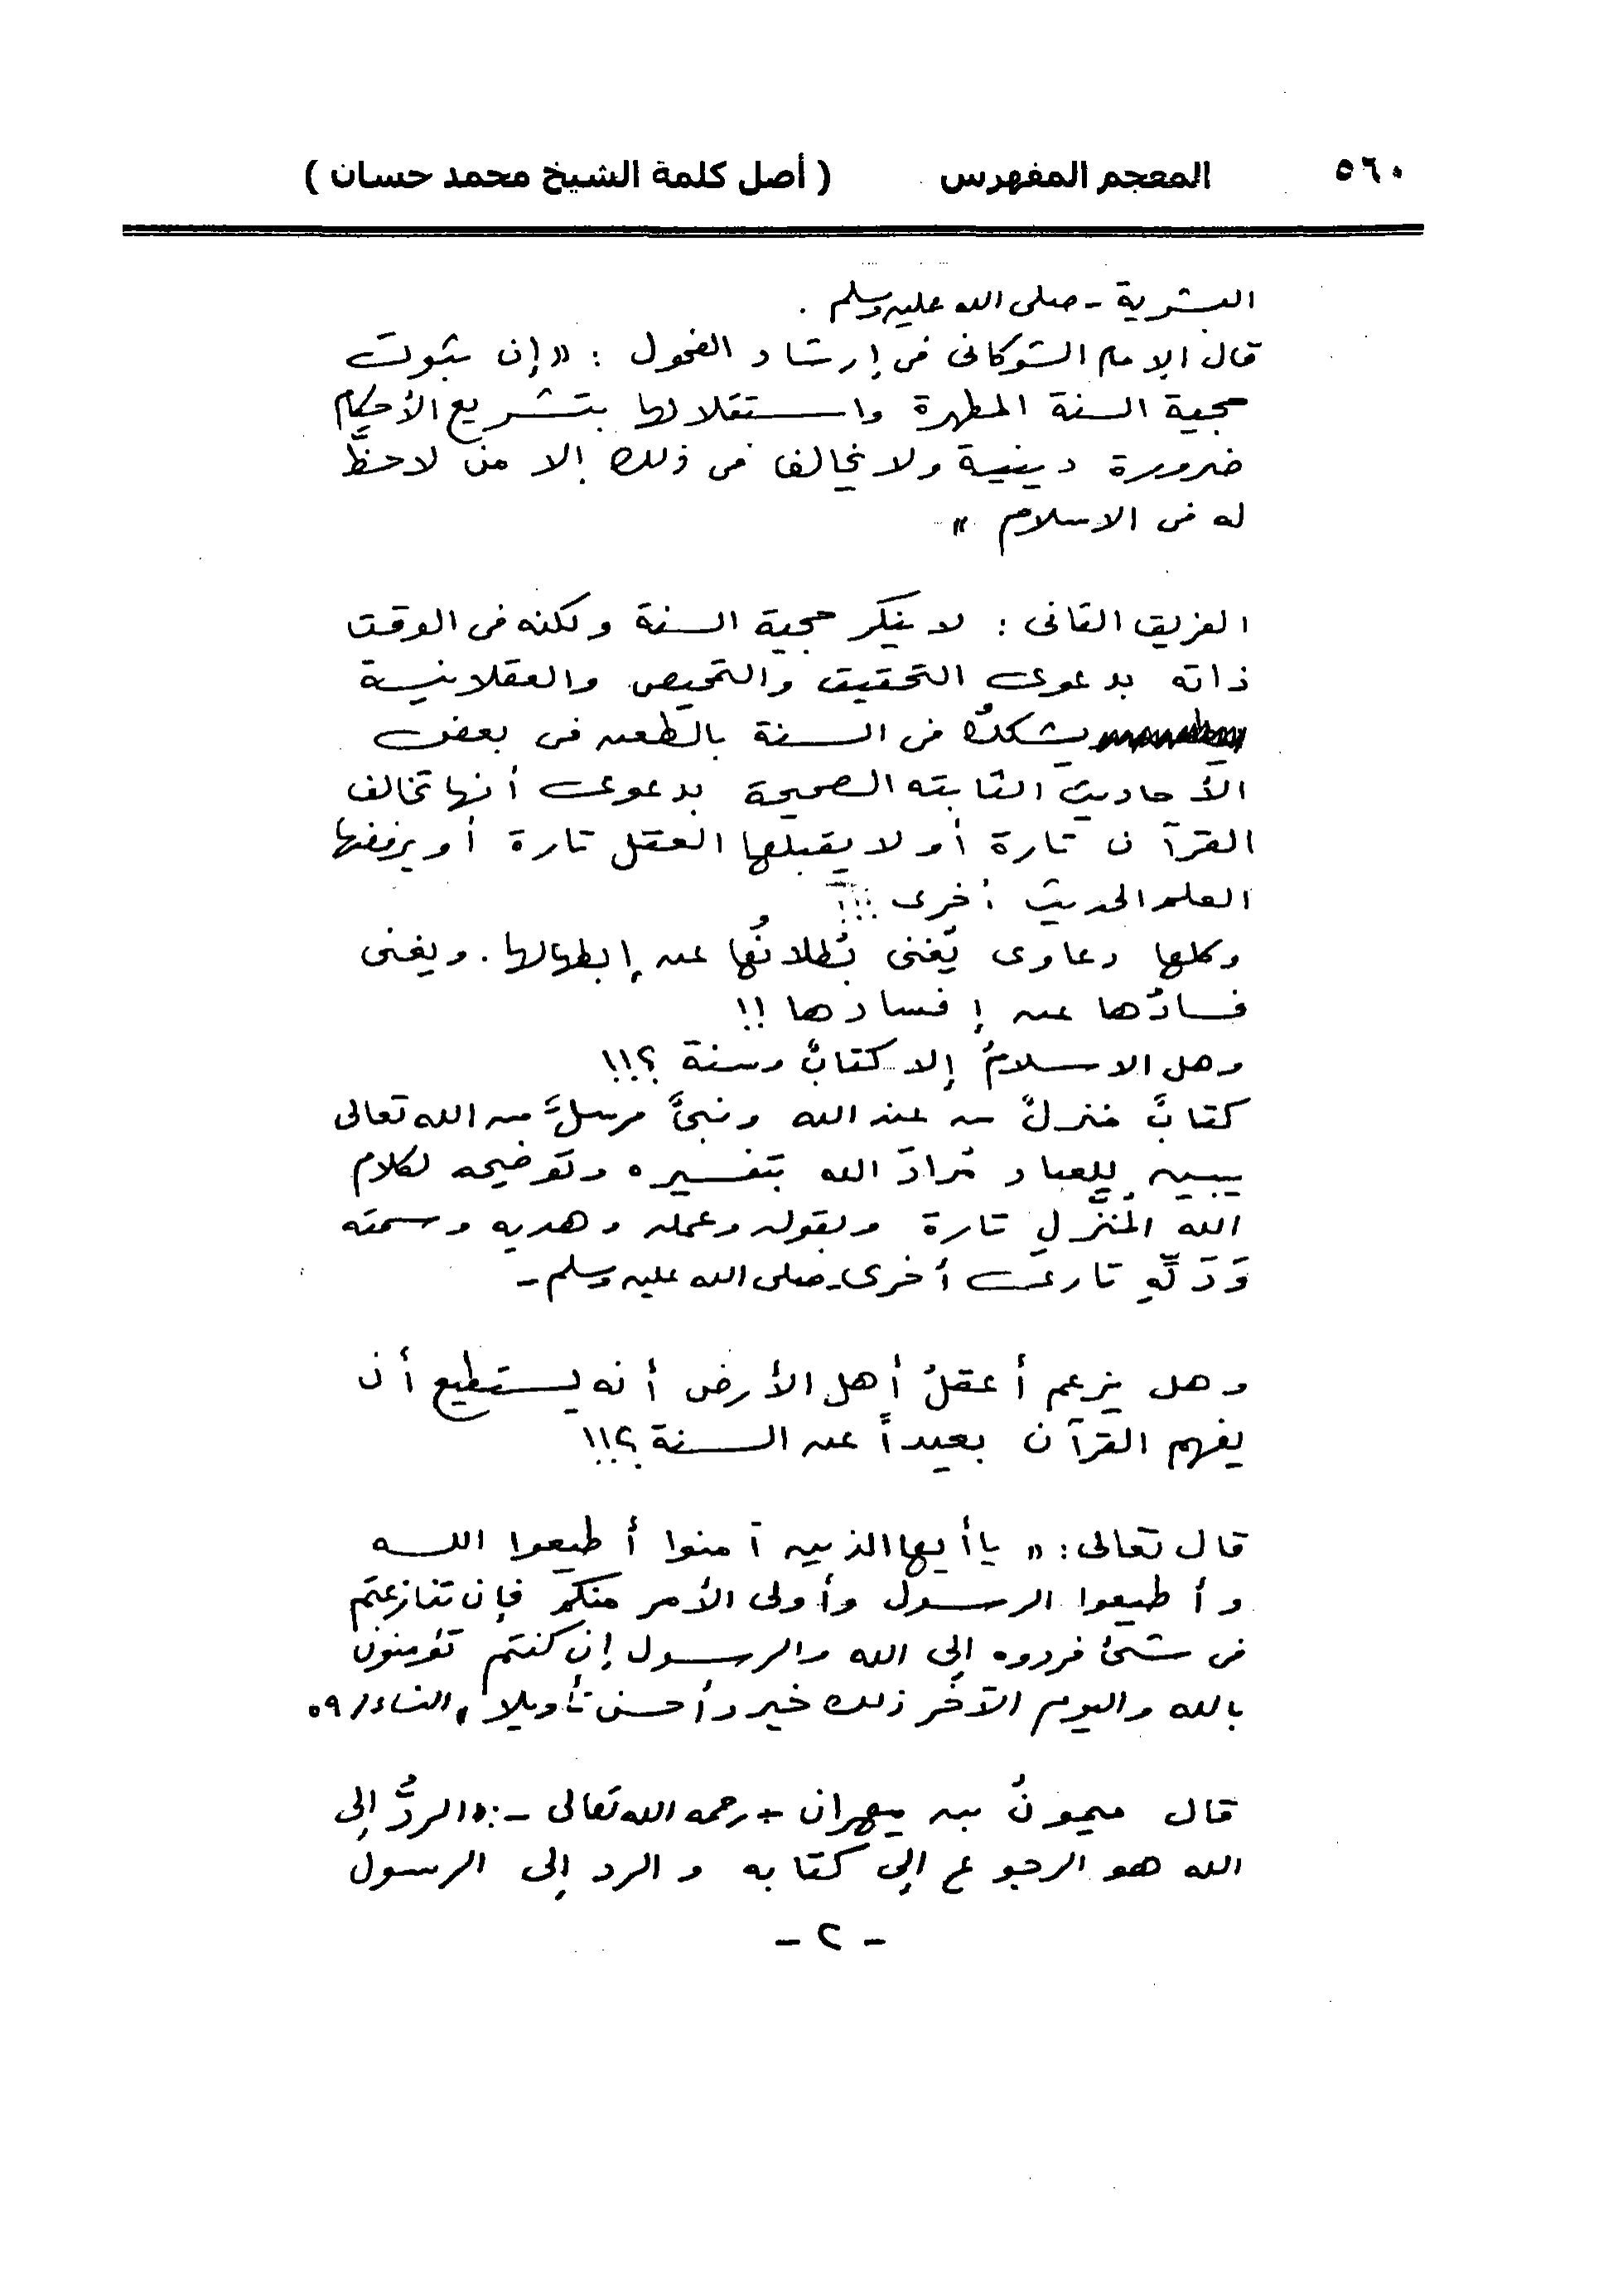 ٥٦٠ المعجم المفهرس ( أصل كلمة الشيخ محمد حسان )
البشرية - صلى الله عليه وسلم .
قال الإمام الشوكانى فى إرشاد الفحول : « إن ثبوت
حجية السنة المطهرة واستقلالها بتشريع الأحكام
ضرورة دينية ولا يخالف فى ذلك إلا من لاحظَّ
له فى الاسلام »
الفريق الثانى : لا ينكر حجية السنة ولكنه فى الوقت
ذاته بدعوى التحقيق والتمحيص والعقلانية
يشككُ فى السنة بالطعن فى بعض
الأحاديث الثابته الصحيحة بدعوى أنها تخالف
القرآن تارة أو لا يقبلها العقل تارة أو يرفضها
العلم الحديث أخرى !!!
وكلها دعاوى يُغنى بُطلانُها عن إبطالها . ويغنى
فسادُها عن إفسادها !!
وهل الاسلامُ إلا كتابٌ وسنة ؟!!
كتابٌ منزلٌ من عند الله ونبىٌّ مرسلٌ من الله تعالى
يبين للعباد مُرادَ الله بتفسيره وتوضيحه لكلام
الله المنَزَّلِ تارة وبقوله وعمله وهديه وسمته
وَدَلِّهِ تارة أخرى - صلى الله عليه وسلم -
وهل يزعم أعقلُ أهل الأرض أنه يستطيع أن
يفهم القرآن بعيداً عن السنة ؟!!
قال تعالى : « ياأيها الذين آمنوا أطيعوا الله
وأطيعوا الرسول وأولى الأمر منكم فإن تنازعتم
فى شىءٍ فردوه إلى الله والرسول إن كنتم تؤمنون
بالله واليوم الآخر ذلك خير وأحسن تأويلا » النساء/٥٩
قال ميمونُ بن مهران - رحمه الله تعالى - : « الردُّ إلى
الله هو الرجوع إلى كتابه والرد إلى الرسول
- ٢ -